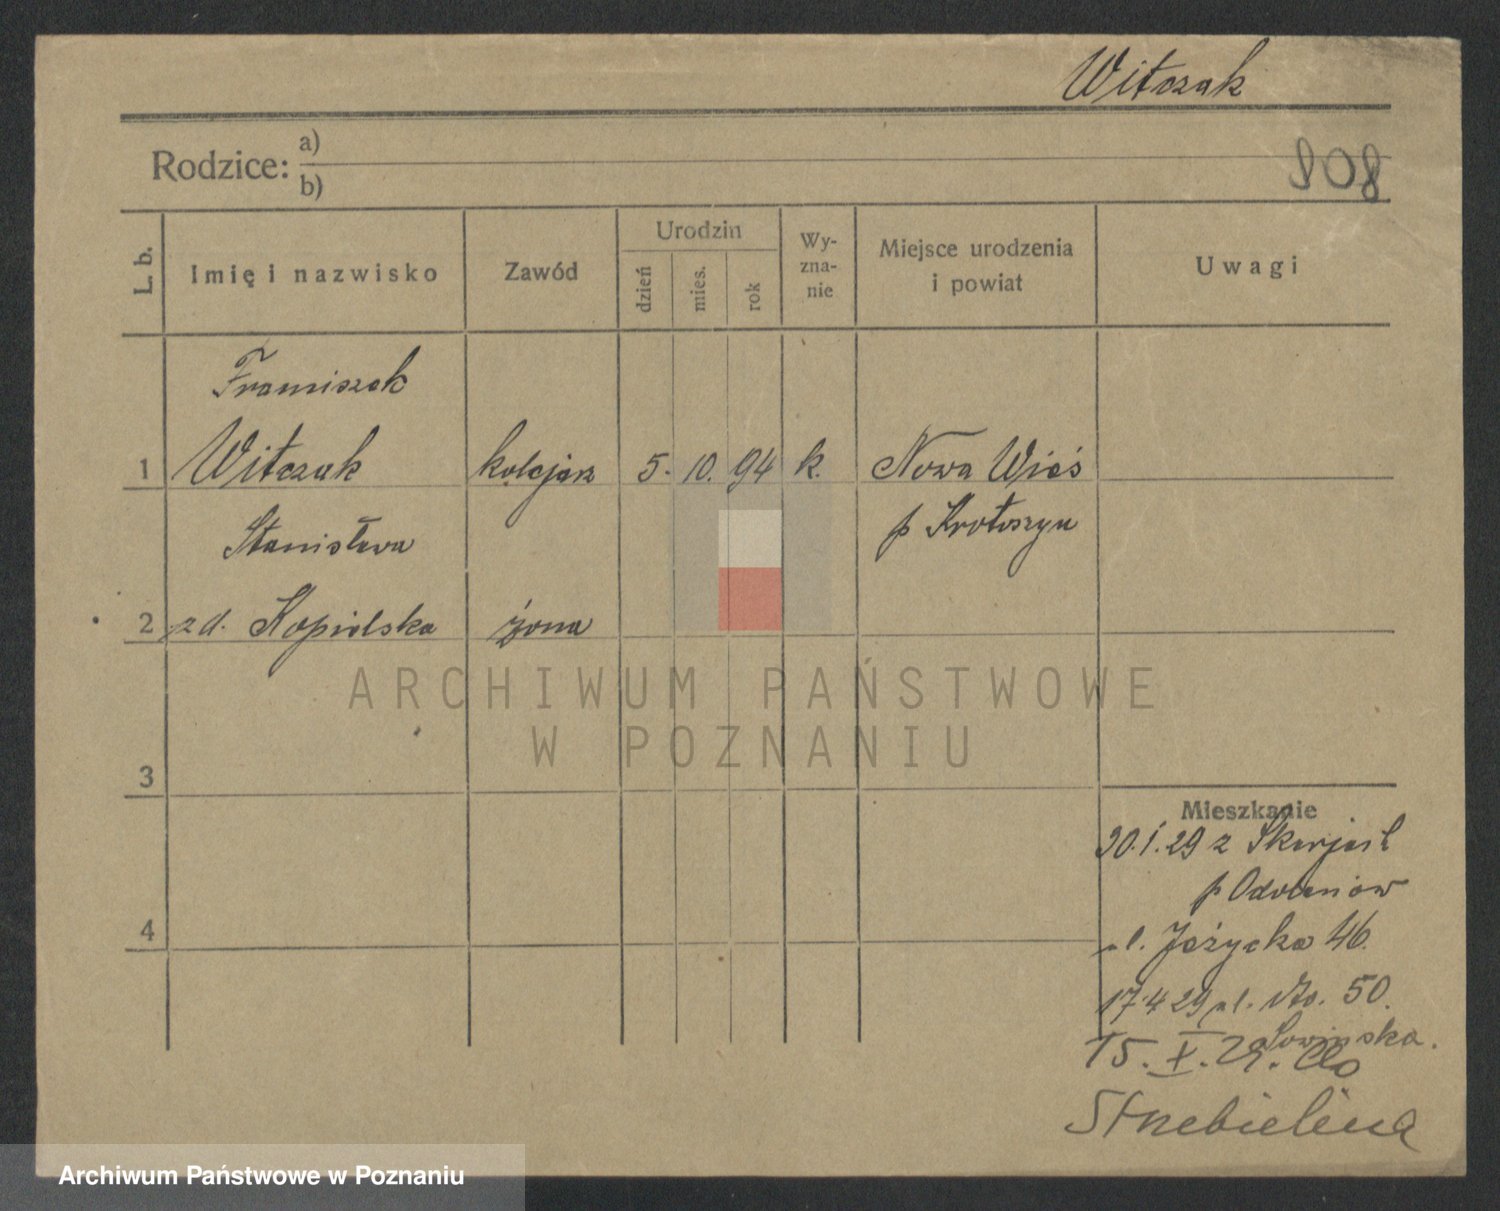 Witczak
Rodzice: a)
b)
808
L. b.
Imię i nazwisko
Zawód
Urodzin
dzień
mies.
rok
Wy-
zna-
nie
Miejsce urodzenia
i powiat
Uwagi
Franciszek
1 Witczak kolejarz 5. 10. 94 k. Nowa Wieś
p Krotoszyn
Stanisława
2 zd. Kopielska żona
3
4
Mieszkanie
30.1.29 z
p Odolanów
ul. Jeżycka 46.
17.4 29 ul. 50.
Sowińska.
15. X. 29. do
Strzebielina
ARCHIWUM PAŃSTWOWE
W POZNANIU
Archiwum Państwowe w Poznaniu